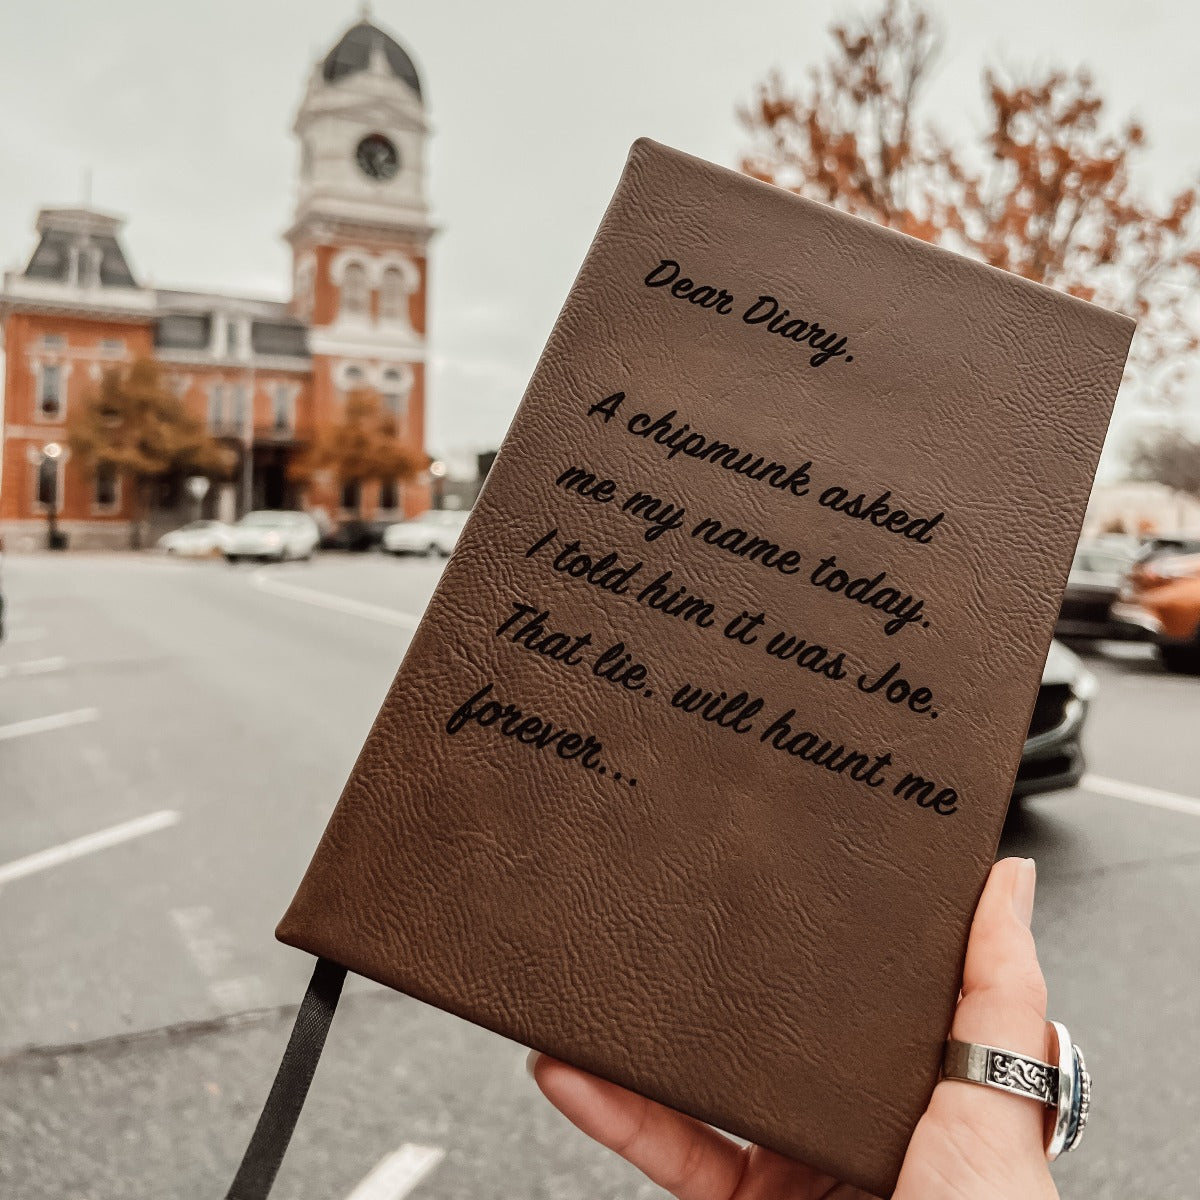 Dear Diary.
A chipmunk asked
me my name today.
I told him it was Joe.
That lie. will haunt me
forever...